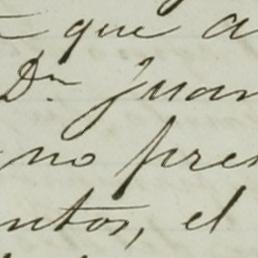 que a
Dn Juan
no pre
ntos, el